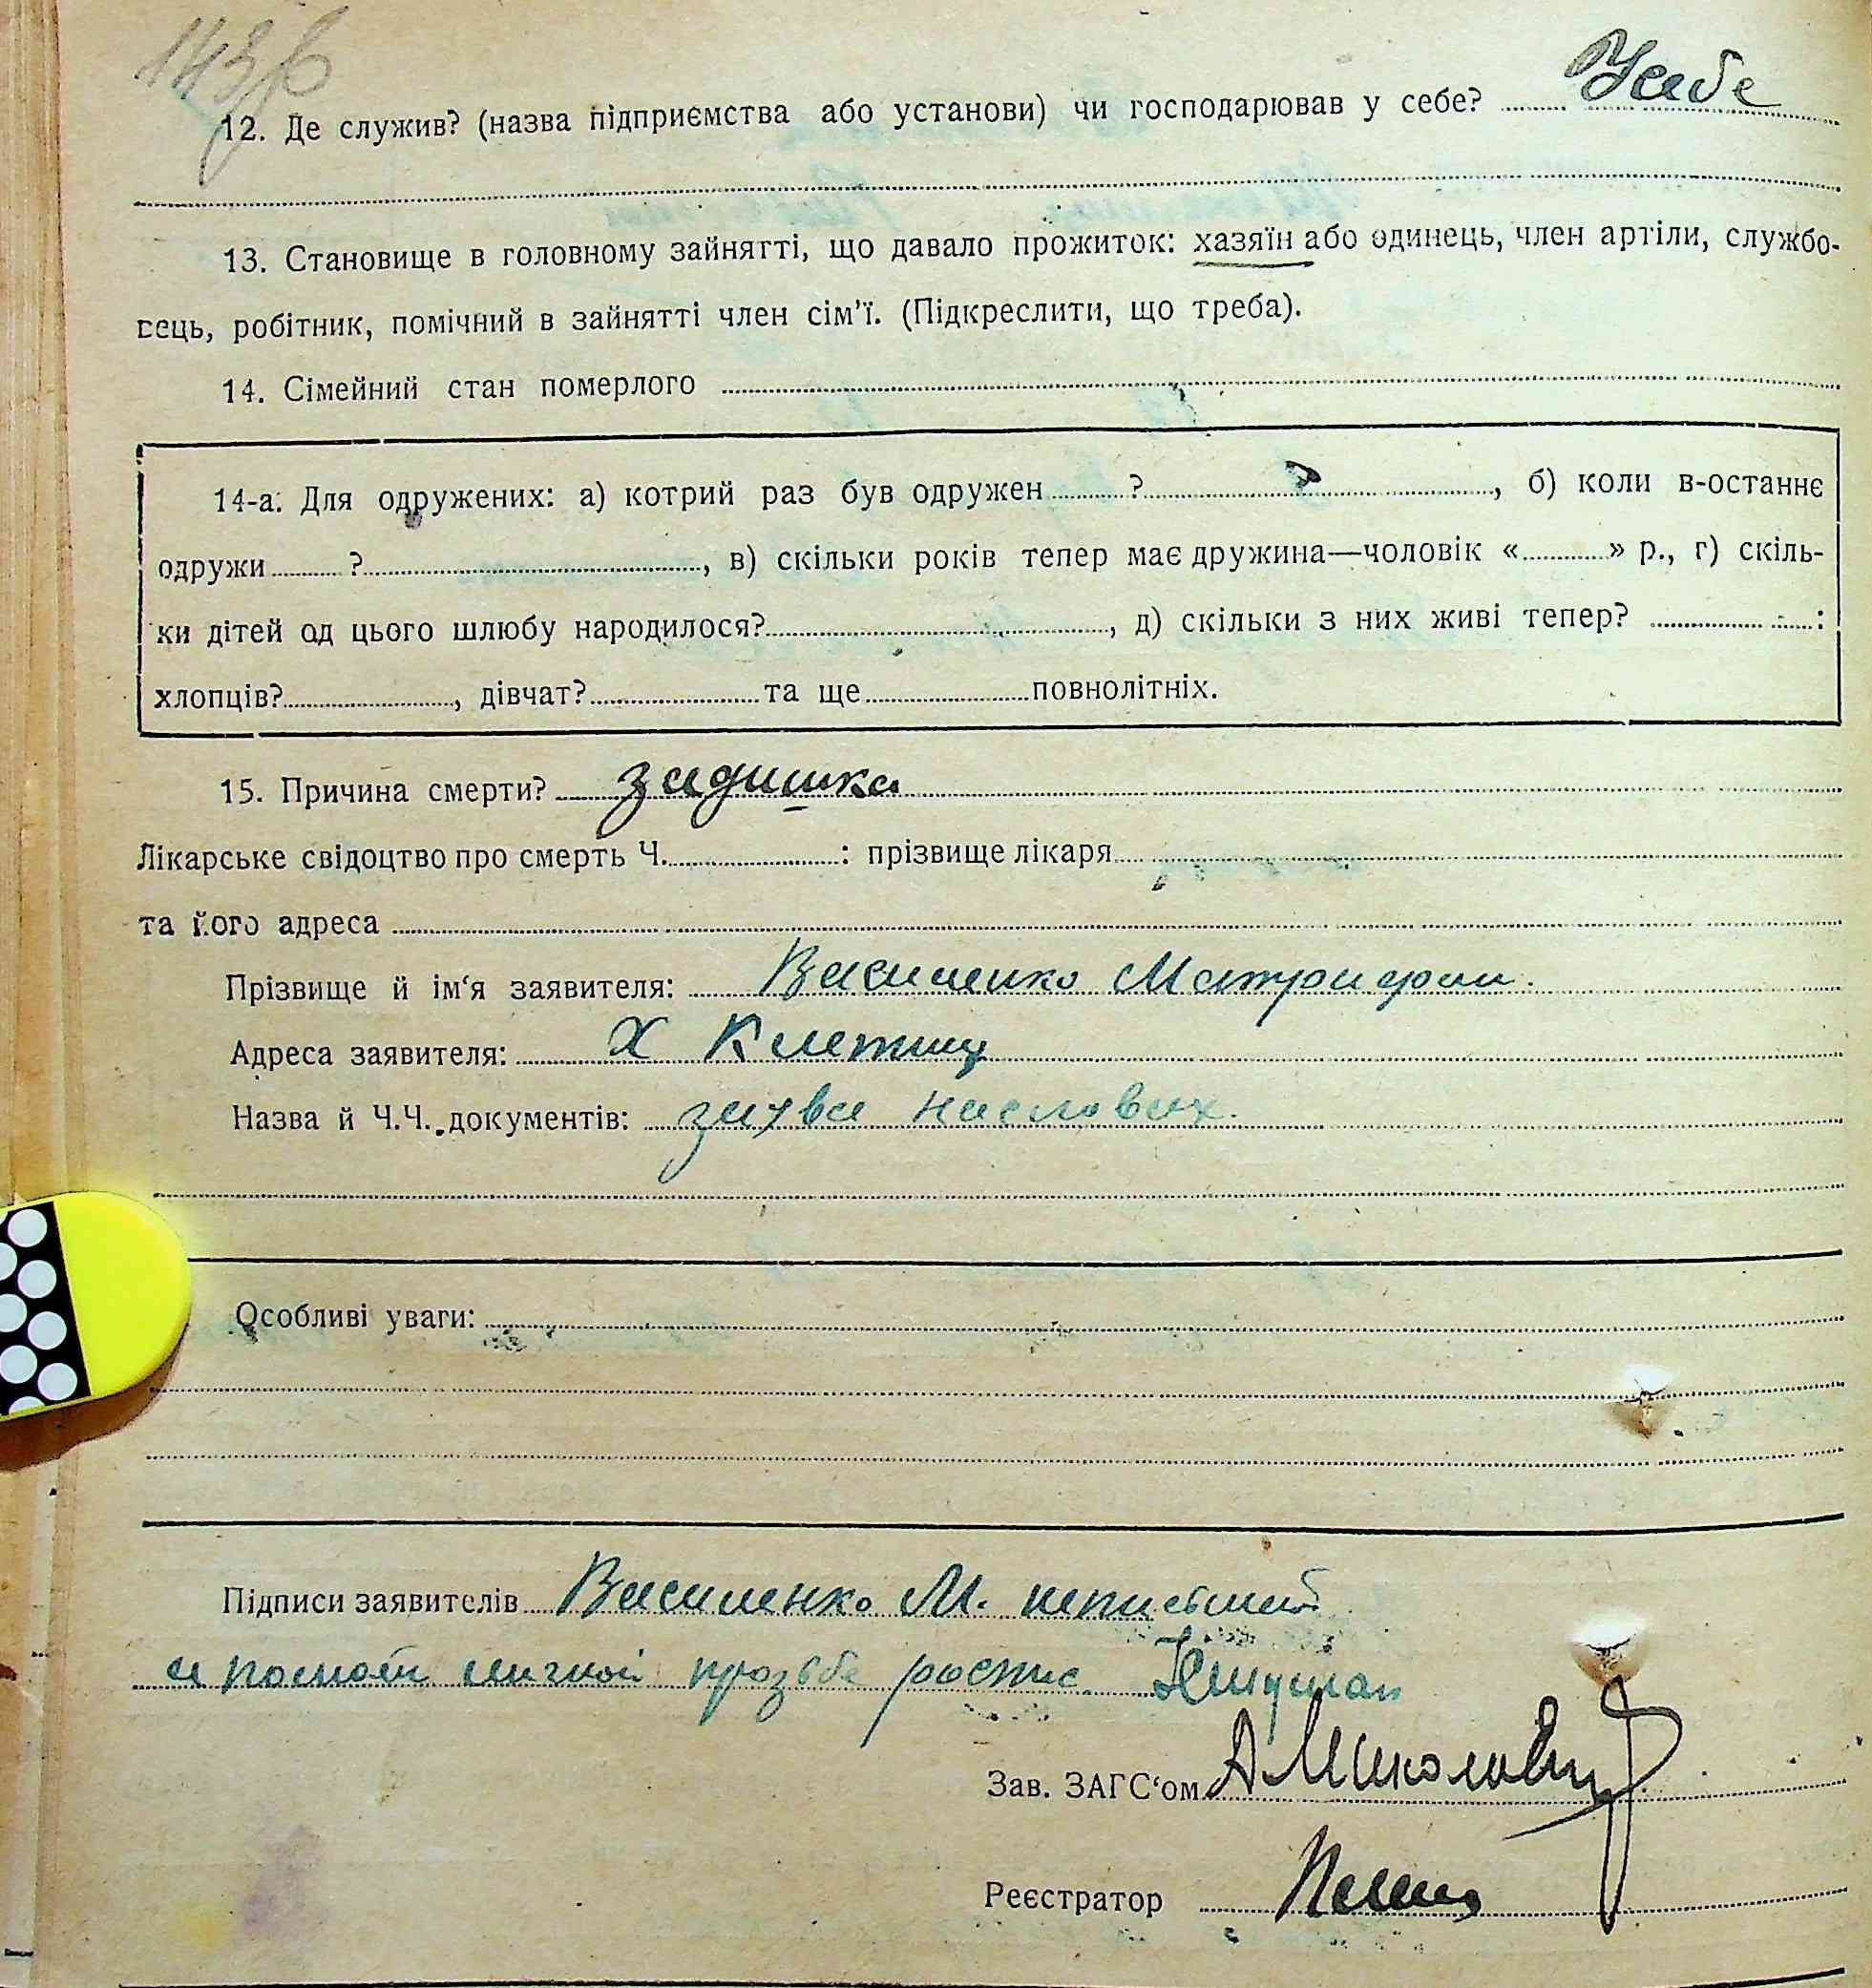 143б
12. Де служив? (назва підприємства або установи) чи господарював у себе? У себе
13. Становище в головному зайнятті, що давало прожиток: хазяїн або одинець, член артіли, службо-
вець, робітник, помічний в зайнятті член сім'ї. (Підкреслити, що треба).
14. Сімейний стан померлого
14-а. Для одружених: а) котрий раз був одружен ?, б) коли в-останнє
одружи ?, в) скільки років тепер має дружина—чоловік « » р., г) скіль-
ки дітей од цього шлюбу народилося?, д) скільки з них живі тепер? :
хлопців?, дівчат? та ще повнолітніх.
15. Причина смерти? задишка
Лікарське свідоцтво про смерть Ч. : прізвище лікаря
та його адреса
Прізвище й ім‘я заявителя: Василенко Митрофан.
Адреса заявителя: Х
Назва й Ч.Ч. документів: заява на словах.
Особливі уваги:
Підписи заявителів Василенко М. неписьмен
личной прозьбе роспис
Зав. ЗАГС‘ом А
Реєстратор